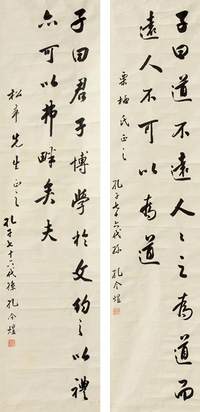 子曰道不遠人々之為道而
遠人不可以為道
栗栖氏正之 孔子七十六代孫 孔令煜
子曰君子博學於文約之以禮
亦可以弗畔矣夫
先生正之 孔子七十六代孫 孔令煜